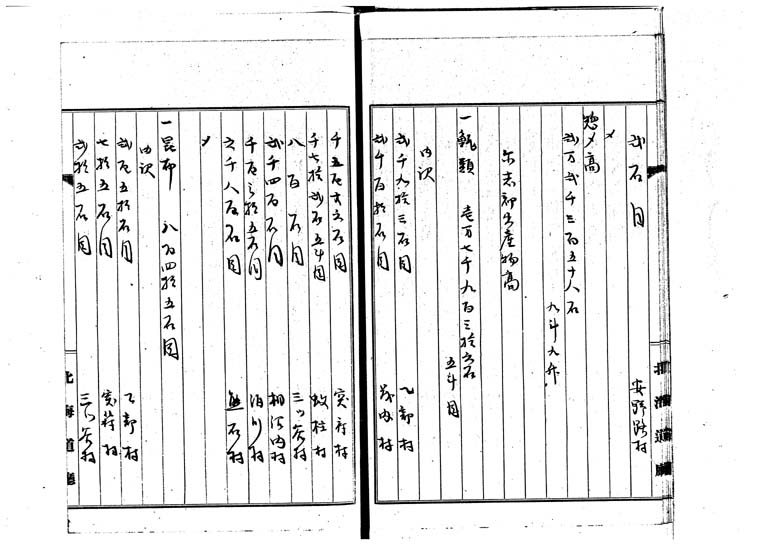 弐石目 安野路村
〆
惣〆高
弐万弐千三百五十八石
九斗九升
尓志郡出産物高
一鯡類 壱万七千九百三拾六石
五斗目
内訳
弐千九拾三石目 乙部村
弐千百拾石目 茂内村
北海道廳
千五百六拾石目 突符村
千七拾弐石五斗目 蚊柱村
八百石目 三ツ谷村
弐千四百石目 相沼内村
千百三拾五石目 泊川村
六千八百石目 熊石村
〆
一昆布 八百四拾五石目
内訳
弐百五拾石目 乙部村
七拾五石目 突符村
弐拾五石目 三ツ谷村
北海道廳